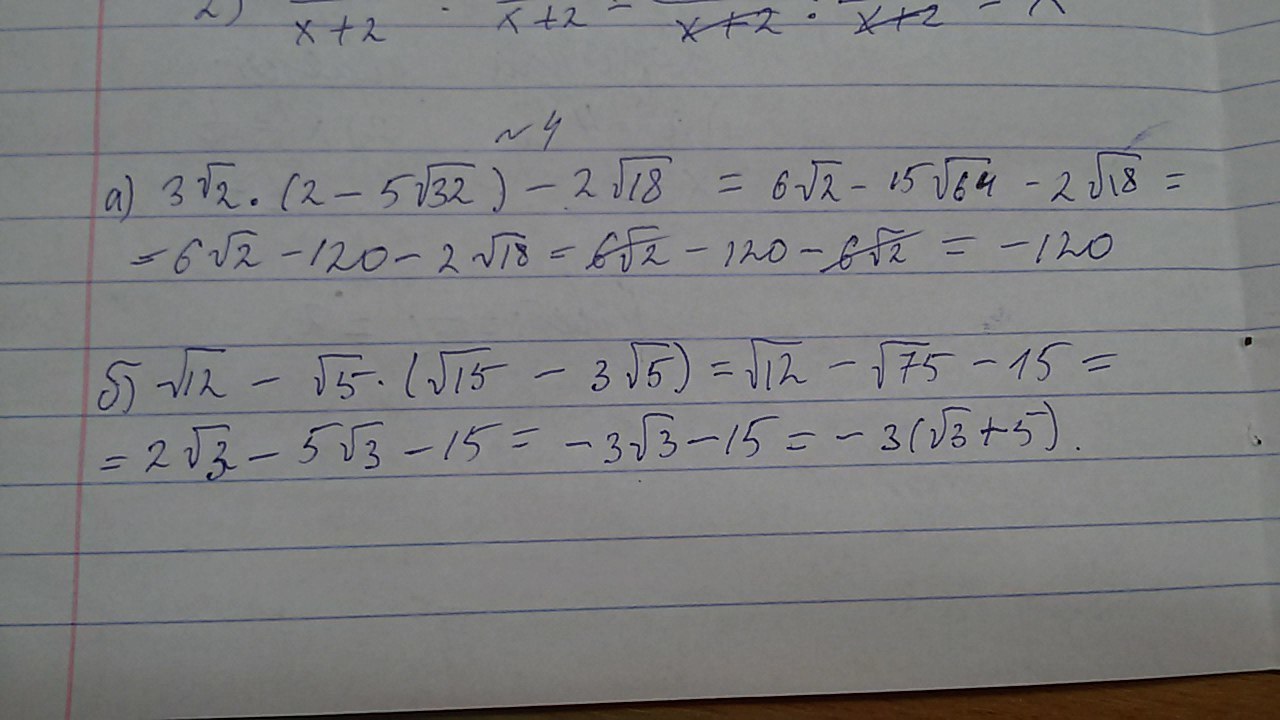 2) x+2 · x+2 = x+2 : x+2 = x
~4
а) 3√2 · (2 − 5√32) − 2√18 = 6√2 − 15√64 − 2√18 =
= 6√2 − 120 − 2√18 = 6√2 − 120 − 6√2 = −120
б) √12 − √5 · (√15 − 3√5) = √12 − √75 − 15 =
= 2√3 − 5√3 − 15 = −3√3 − 15 = −3(√3 + 5).